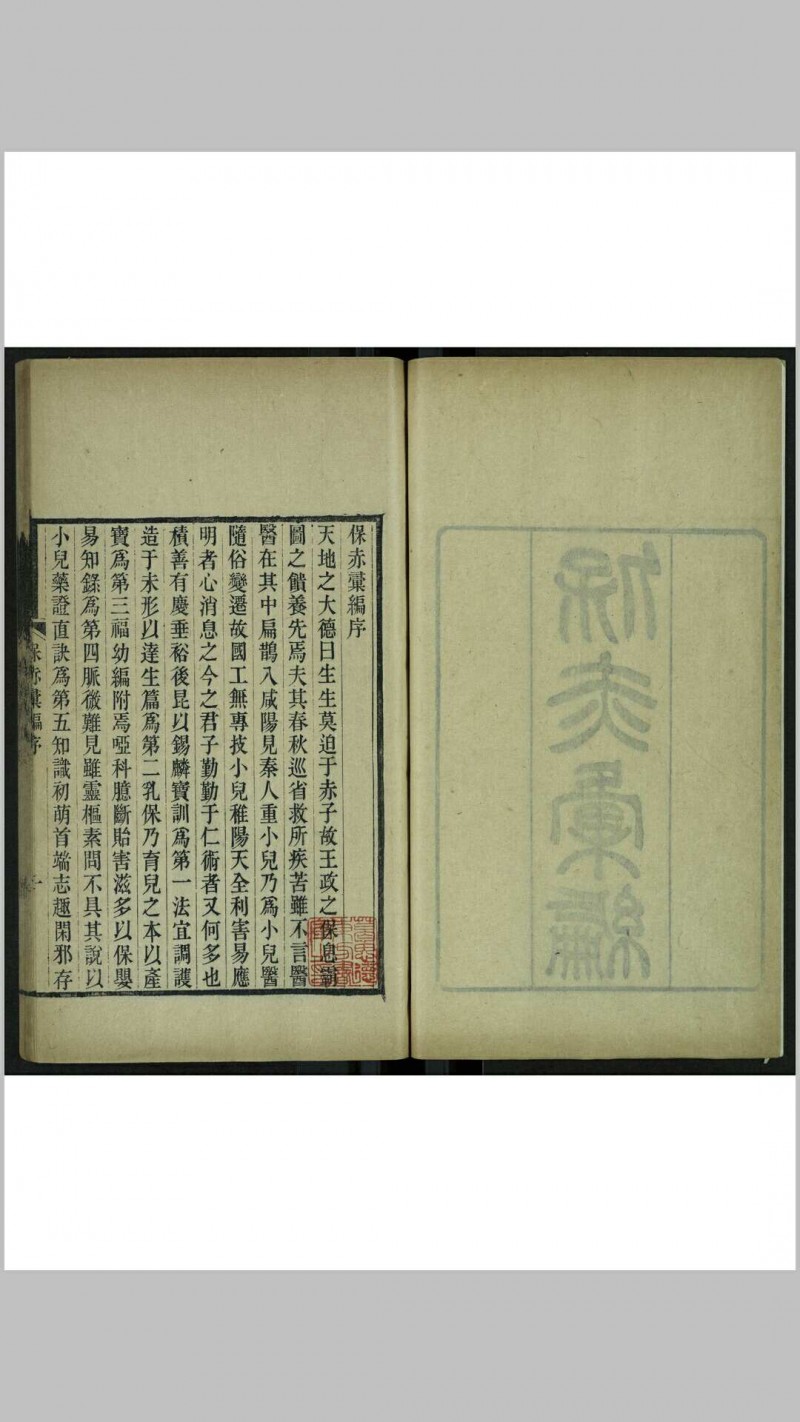 保赤彙編
保赤彙編序
天地之大德曰生生莫迫于赤子故王政之保息霸
圖之饋養先焉夫其春秋巡省救所疾苦雖不言醫
醫在其中扁鵲入咸陽見秦人重小兒乃為小兒醫
隨俗變遷故國工無專技小兒稚陽天全利害易應
明者心消息之今之君子勤勤于仁術者又何多也
積善有慶垂裕後昆以錫麟寶訓為第一法宜調護
造于未形以達生篇為第二乳保乃育兒之本以產
寶為第三福幼編附焉啞科臆斷貽害滋多以保嬰
易知錄為第四脈微難見雖靈樞素問不具其說以
小兒藥證直訣為第五知識初萌首端志趣閑邪存
保赤彙編序 一